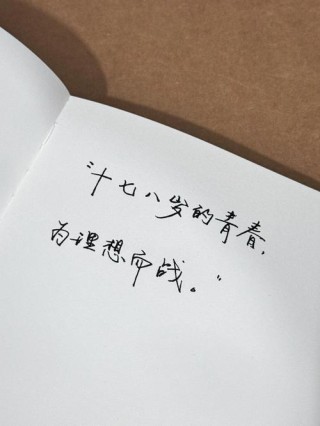 “十七八岁的青春，
为理想而战。”